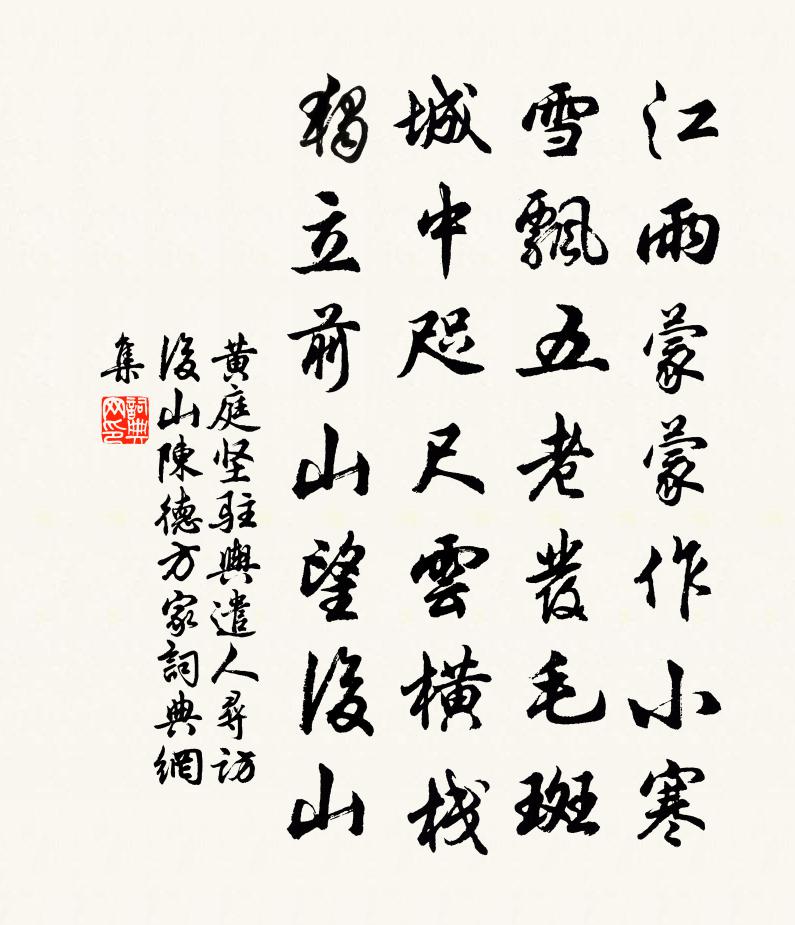 江雨蒙蒙作小寒
雪飄五老發毛斑
城中咫尺雲橫棧
獨立前山望後山
黄庭坚駐輿遣人尋訪
後山陳德方家詞典網
集
詞典
网印